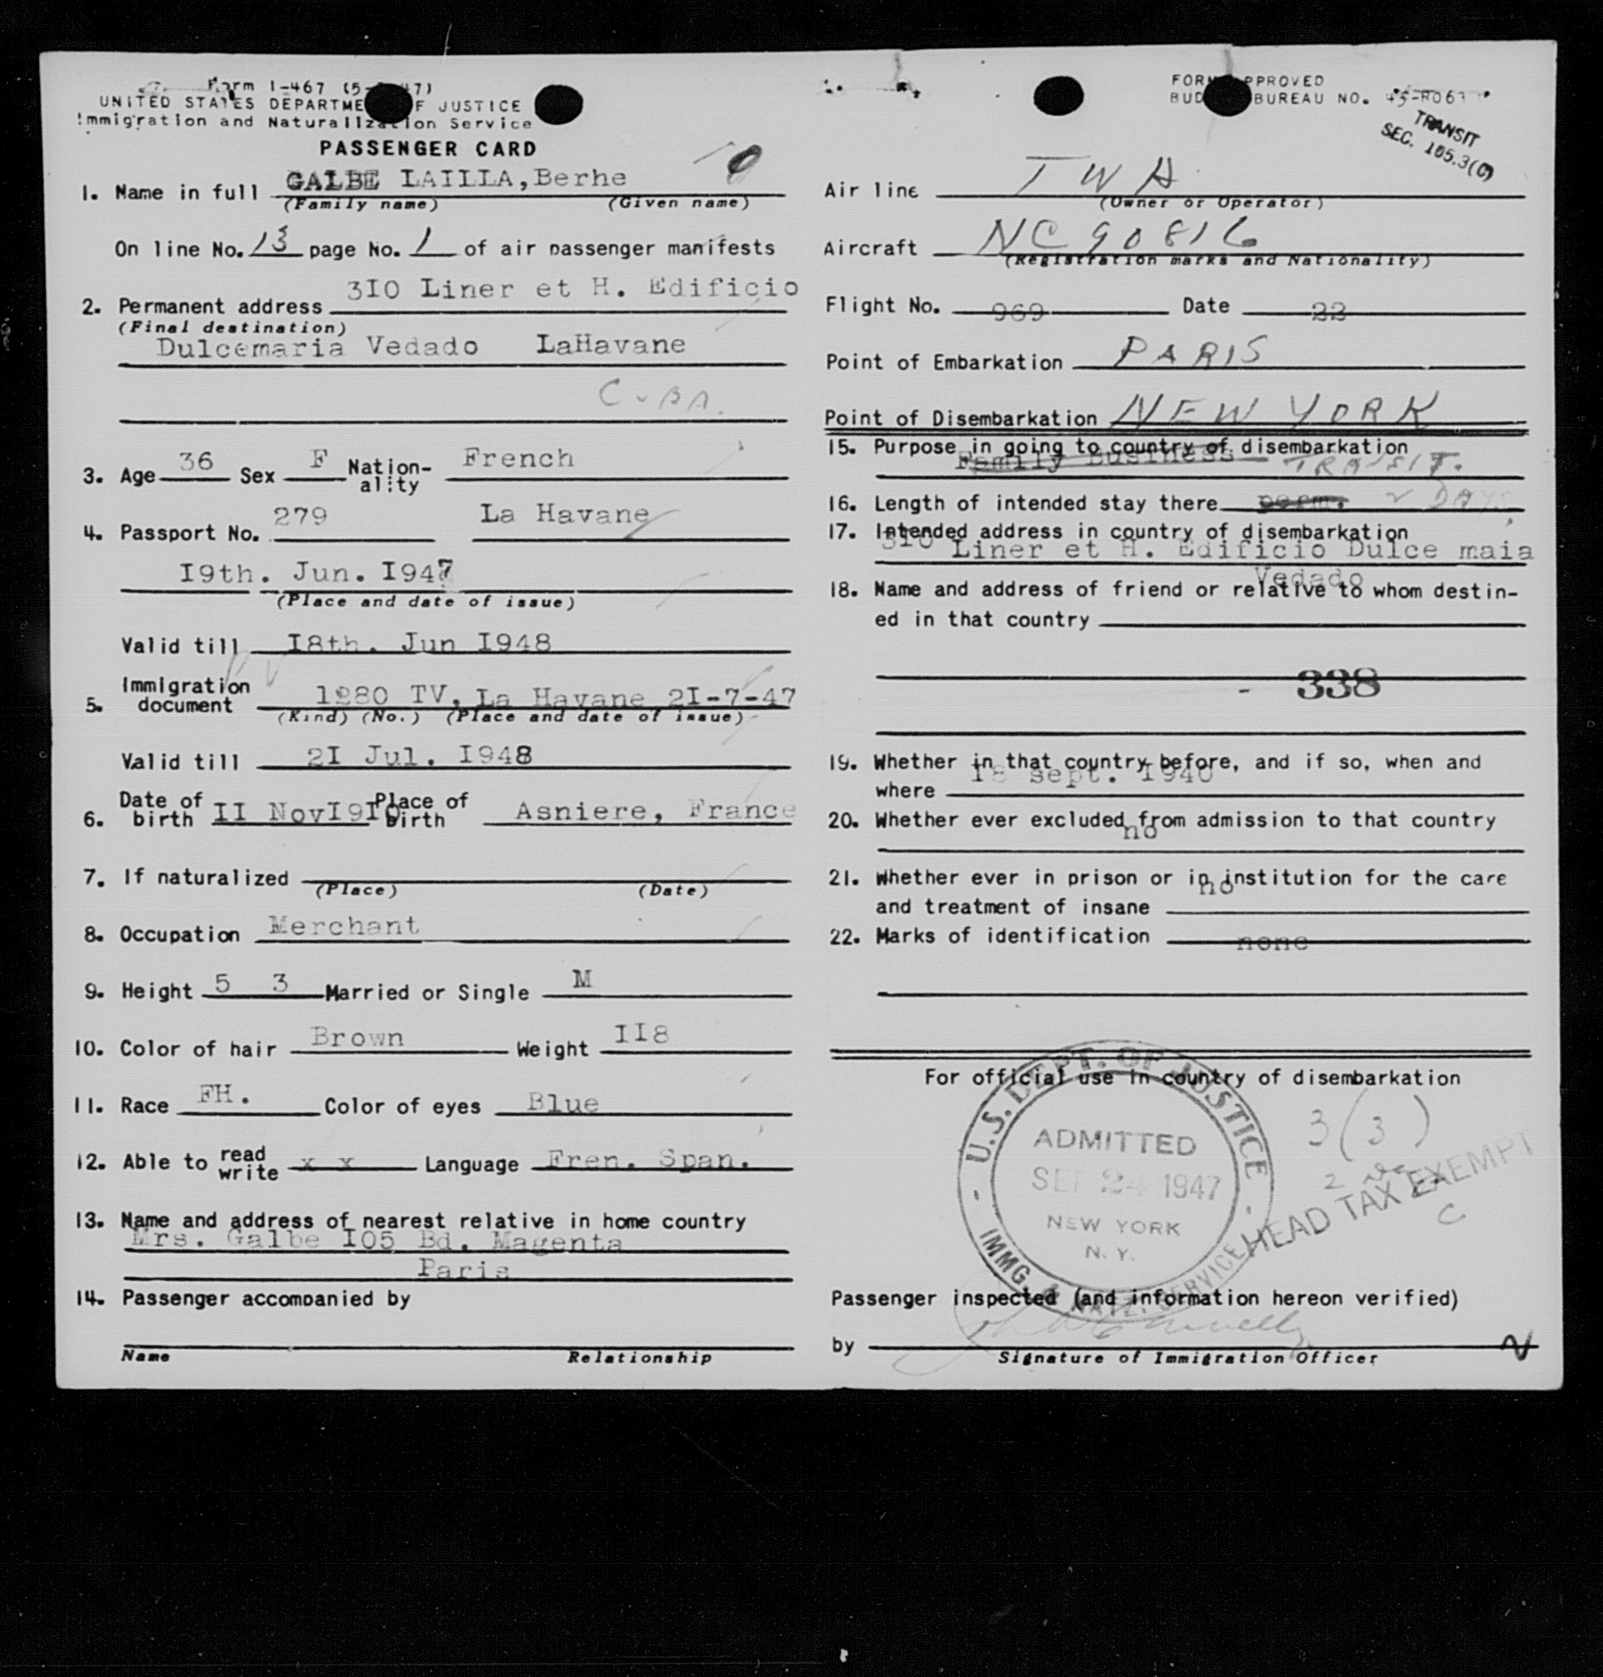 Form I-467 (5- 47)
UNITED STATES DEPARTME F JUSTICE
Immigration and Naturalization Service
PASSENGER CARD
1. Name in full GALBE LAILLA, Berhe
(Family name) (Given name)
On line No. 13 page No. 1 of air passenger manifests
2. Permanent address 3I0 Liner et H. Edificio
(Final destination)
Dulcemaria Vedado LaHavane
CUBA.
3. Age 36 Sex F Nation-ality French
4. Passport No. 279 La Havane
I9th. Jun. I947
(Place and date of issue)
Valid till I8th. Jun I948
5. Immigration document 1280 TV, La Havane 2I-7-47
(Kind) (No.) (Place and date of issue)
Valid till 2I Jul. I948
6. Date of birth II NovI9I0 Place of birth Asniere, France
7. If naturalized
(Place) (Date)
8. Occupation Merchant
9. Height 5 3 Married or Single M
10. Color of hair Brown Weight II8
11. Race FH. Color of eyes Blue
12. Able to read write x x Language Fren. Span.
13. Name and address of nearest relative in home country
Mrs. Galbe I05 Bd. Magenta
Paris
14. Passenger accompanied by
Name Relationship
FORM APPROVED
BUD BUREAU NO. 45-R063
TRANSIT
SEC. 105.3(C)
Air line TWA
(Owner or Operator)
Aircraft NC 90816
(Registration marks and Nationality)
Flight No. 969 Date 22
Point of Embarkation PARIS
Point of Disembarkation NEW YORK
15. Purpose in going to country of disembarkation
Family business TRANSIT.
16. Length of intended stay there perm. 2 DAYS
17. Intended address in country of disembarkation
310 Liner et H. Edificio Dulce maia
Vedado
18. Name and address of friend or relative to whom destin-
ed in that country
- 338
19. Whether in that country before, and if so, when and
where 18 sept. 1946
20. Whether ever excluded from admission to that country
no
21. Whether ever in prison or in institution for the care
no
and treatment of insane
22. Marks of identification none
For official use in country of disembarkation
U.S. DEPT. OF JUSTICE
ADMITTED
SEP 24 1947
NEW YORK
N.Y.
IMMG. & NATZ. SERVICE
3(3)
HEAD TAX EXEMPT
C
Passenger inspected (and information hereon verified)
by
Signature of Immigration Officer